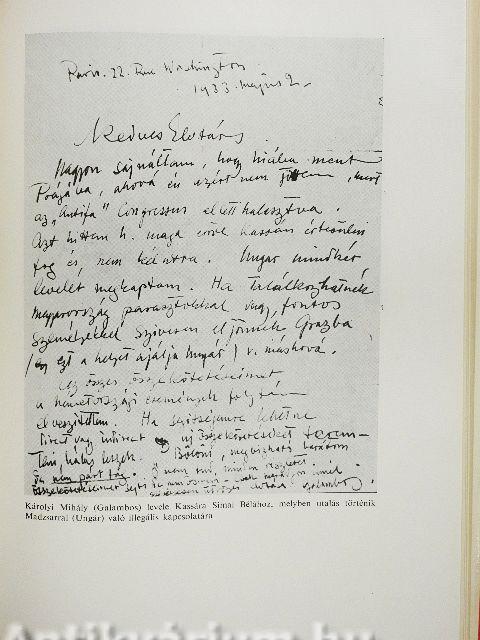 Páris. 22. Rue Washington
1933. május 2.
Kedves Elvtárs.
Nagyon sajnáltam, hogy hiába ment
Prágába, ahová én azért nem jöttem, mert
az „Antifa" Congressus el lett halasztva.
Azt hittem h. maga erről Kassán értesülni
fog és nem
Ungár mindkét
levelét megkaptam. Ha találkozhatnék
magyarország parasztokkal vagy fontos
személyekkel szívesen eljönnék Grazba
/ez ezt a helyet ajálja Ungár / v. máshová.
Az összes összeköttetéseimet
a németországi események folytán
elveszítettem. Ha segítségemre lehetne
direct vagy indirect új összeköttetéseket terem-
teni, hálás leszek. Bölöni, megbízható barátom
és nem párt tag.
Galambos.
Károlyi Mihály (Galambos) levele Kassára Simai Bélához, melyben utalás történik
Madzsarral (Ungár) való illegális kapcsolatára
Antikvárium.hu